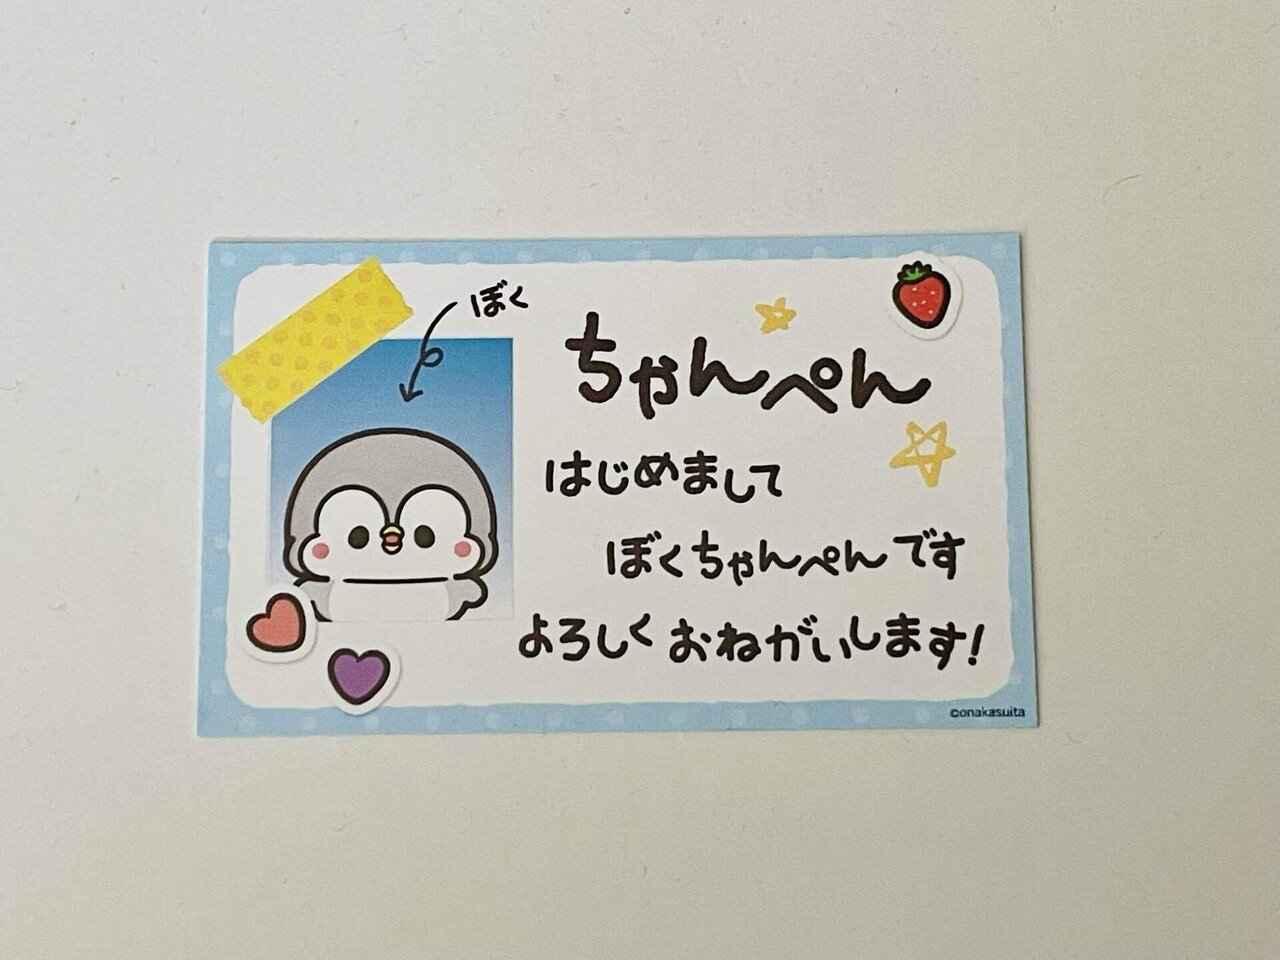 ぼく
ちゃんぺん
はじめまして
ぼくちゃんぺんです
よろしくおねがいします!
©onakasuita